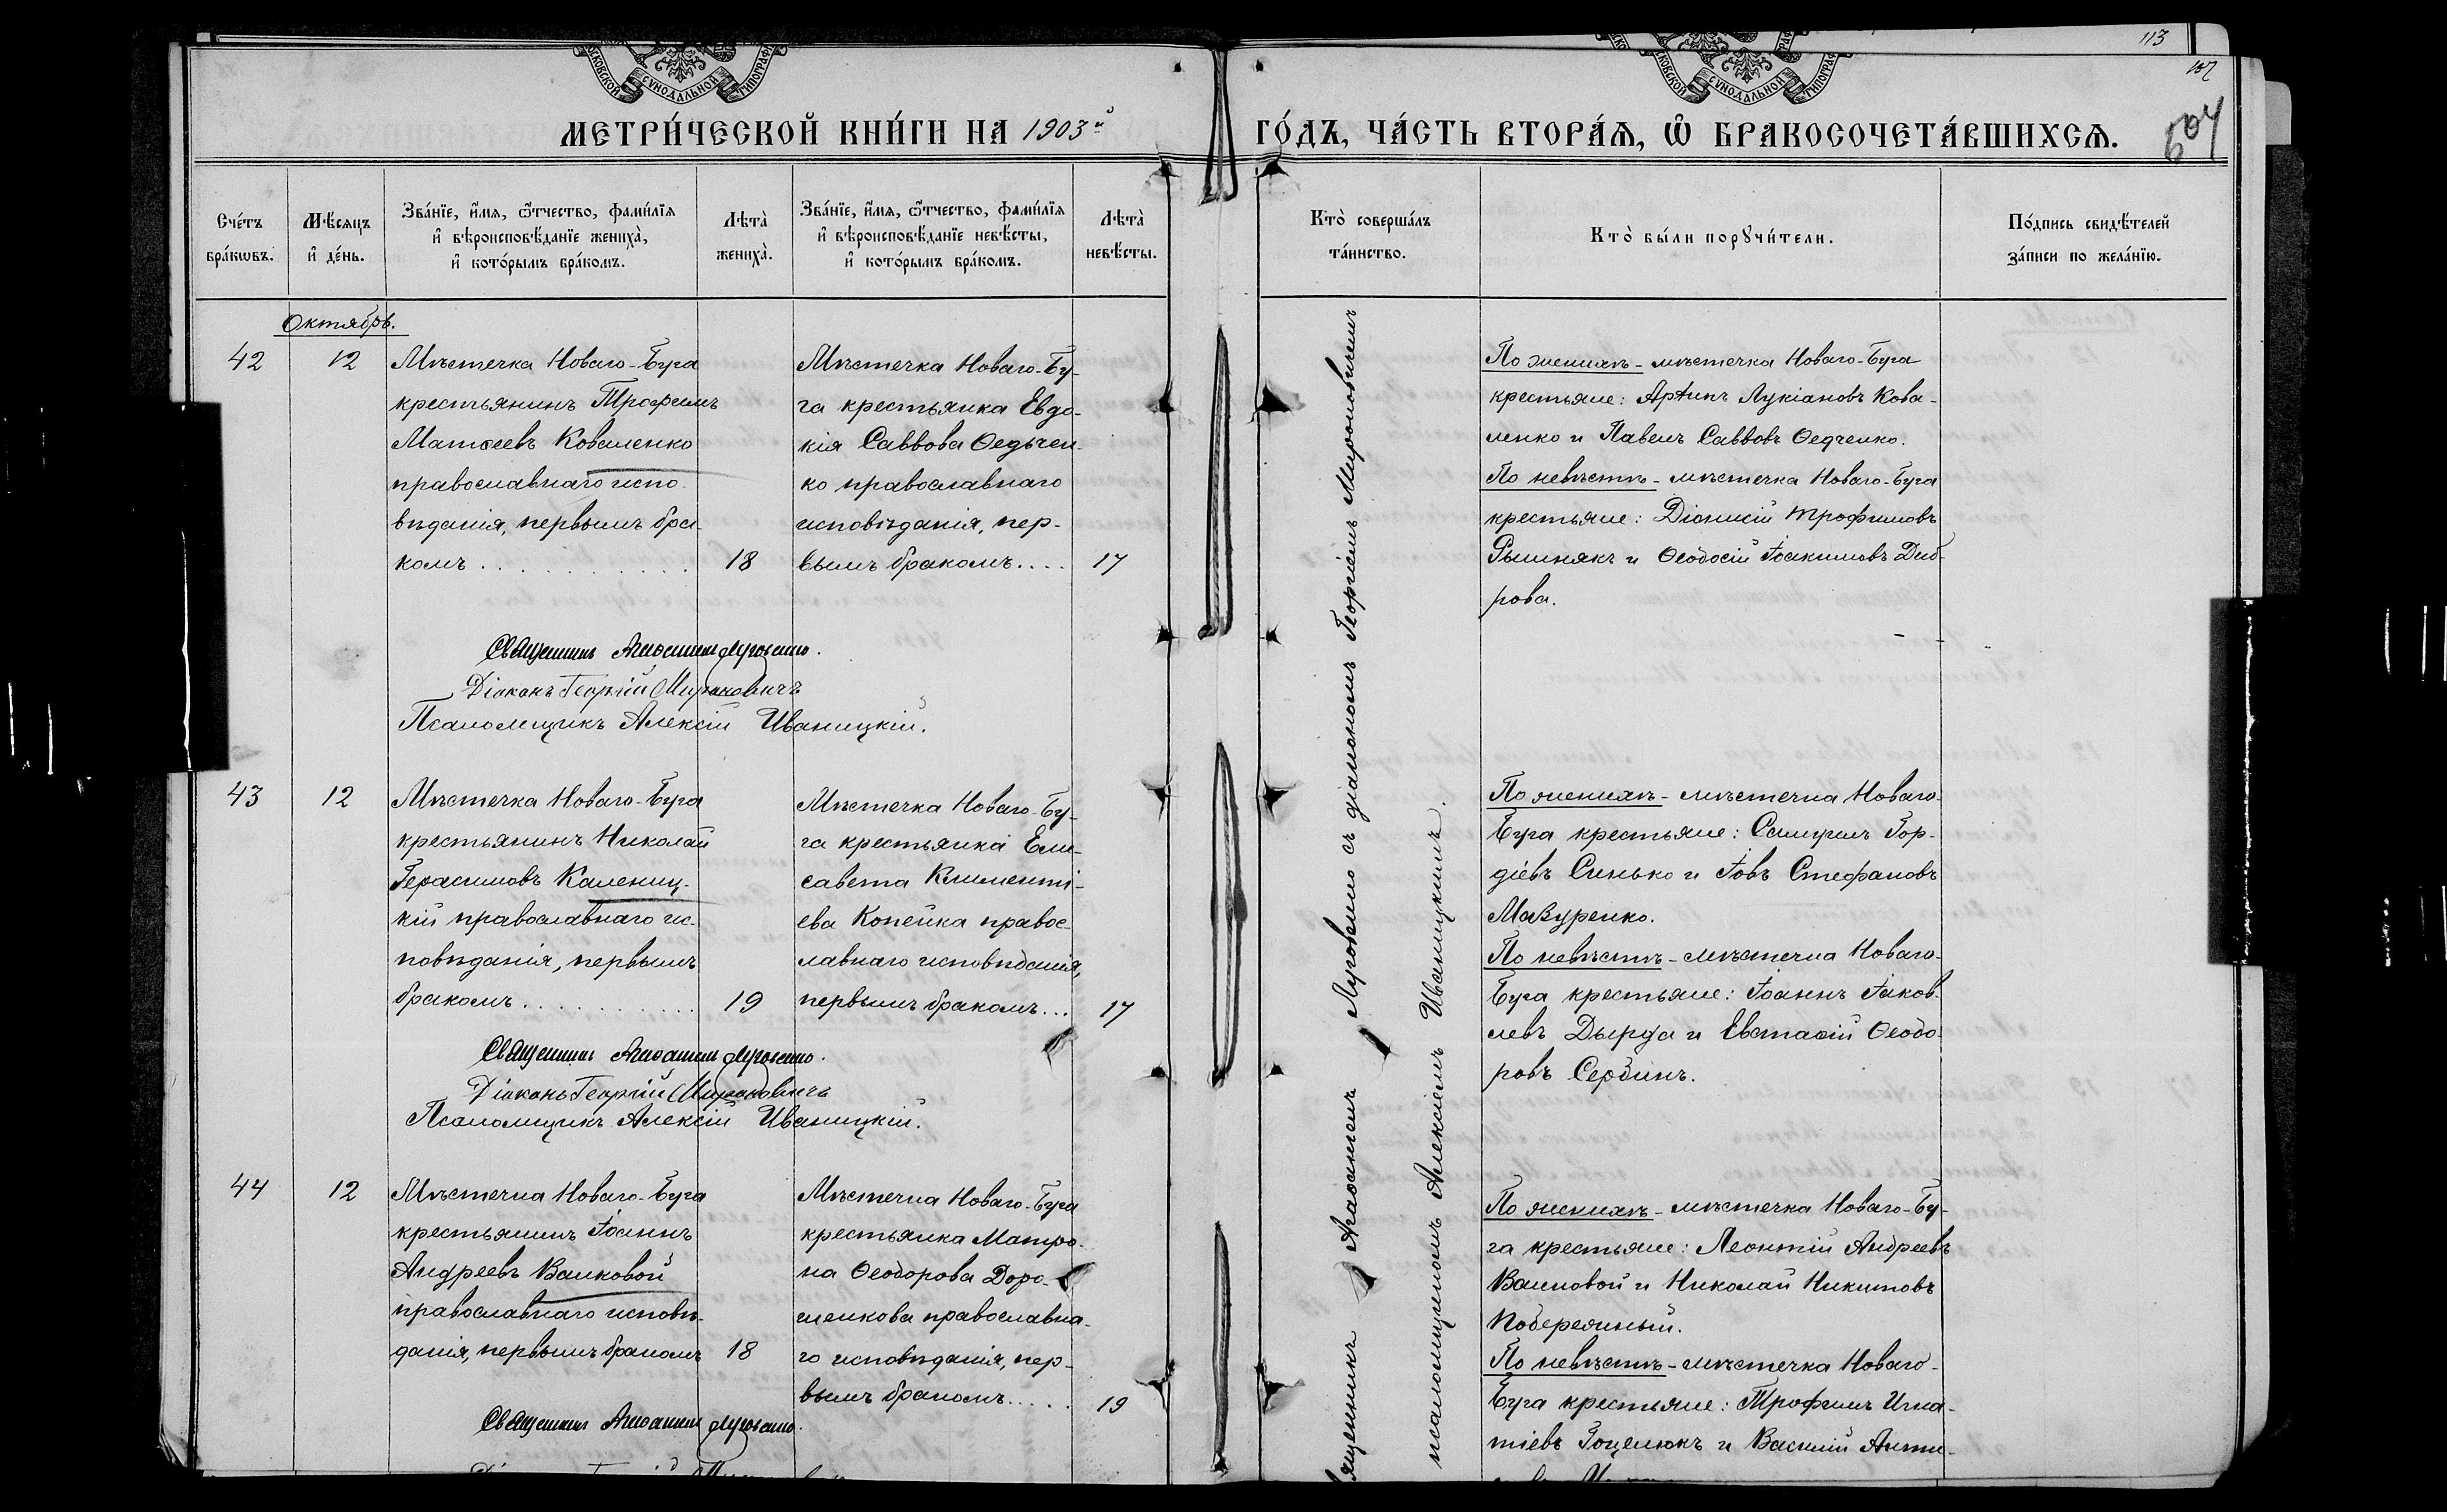 МОСКОВСКОЙ СѴНОДАЛЬНОЙ ТИПОГРАФ
МОСКОВСКОЙ СѴНОДАЛЬНОЙ ТИПОГРАФ
113
107
604
МЕТРИ́ЧЕСКОЙ КНИ́ГИ НА 1903й
ГО́ДЪ, ЧА́СТЬ ВТОРА́Ѧ, Ѡ҆ БРАКОСОЧЕТА́ВШИХСѦ.
Сче́тъ бра́кѡвъ.
Мѣ́сѧцъ и҆ де́нь.
Зва́нїе, и҆́мѧ, ѻ҆́тчество, фами́лїѧ
и҆ вѣроисповѣ́данїе жениха̀,
и҆ кото́рымъ бра́комъ.
Лѣта̀ жениха̀.
Зва́нїе, и҆́мѧ, ѻ҆́тчество, фами́лїѧ
и҆ вѣроисповѣ́данїе невѣ́сты,
и҆ кото́рымъ бра́комъ.
Лѣта̀ невѣ́сты.
Кто̀ соверша́лъ та́инство.
Кто̀ бы́ли порꙋчи́тели.
По́дпись свидѣ́телей
за́писи по жела́нїю.
Октябрь.
42
12
Мѣстечка Новаго-Буга
крестьянинъ Трофимъ
Матѳеевъ Коваленко
православнаго испо-
вѣданія, первымъ бра-
комъ . . . . . . . . . .
18
Мѣстечка Новаго-Бу-
га крестьянка Евдо-
кія Саввова Ѳедьчен-
ко православнаго
исповѣданія, пер-
вымъ бракомъ. . . .
17
По женихѣ - мѣстечка Новаго-Буга
крестьяне: Архипъ Лукіановъ Кова-
ленко и Павелъ Саввовъ Ѳедченко.
По невѣстѣ - мѣстечка Новаго-Буга
крестьяне: Діонисій Трофимовъ
и Ѳеодосій Іоакимовъ Диб-
рова.
Священникъ Агаѳангелъ Луговенко.
Діаконъ Георгій Мироновичъ
Псаломщикъ Алексій Иваницкій.
43
12
Мѣстечка Новаго-Буга
крестьянинъ Николай
Герасимовъ Калениц-
кій православнаго ис-
повѣданія, первымъ
бракомъ . . . . . . . . . .
19
Мѣстечка Новаго-Бу-
га крестьянка Ели-
савета Клименті-
ева Копейка правос-
лавнаго исповѣданія,
первымъ бракомъ. . .
17
По женихѣ - мѣстечка Новаго-
Буга крестьяне: Самуилъ Гор-
діевъ Синько и Іовъ Стефановъ
Мазуренко.
По невѣстѣ - мѣстечка Новаго-
Буга крестьяне: Іоаннъ Іаков-
левъ Дырда и Евстафій Ѳеодо-
ровъ Сербинъ.
Священникъ Агаѳангелъ Луговенко.
Діаконъ Георгій Мироновичъ
Псаломщикъ Алексій Иваницкій.
44
12
Мѣстечка Новаго-Буга
крестьянинъ Іоаннъ
Андреевъ Валковой
православнаго исповѣ-
данія, первымъ бракомъ
18
Мѣстечка Новаго-Буга
крестьянка Матро-
на Ѳеодорова Доро-
шенкова православна-
го исповѣданія, пер-
вымъ бракомъ. . . . .
19
По женихѣ - мѣстечка Новаго-Бу-
га крестьяне: Леонтій Андреевъ
Валковой и Николай Никитовъ
Побережный.
По невѣстѣ - мѣстечка Новаго-
Буга крестьяне: Трофимъ Игна-
тіевъ Гоцелюкъ и Василій Анти-
Священникъ Агаѳангелъ Луговенко.
Священникъ Агаѳангелъ Луговенко съ діакономъ Георгіемъ Мироновичемъ
псаломщикомъ Алексіемъ Иваницкимъ.